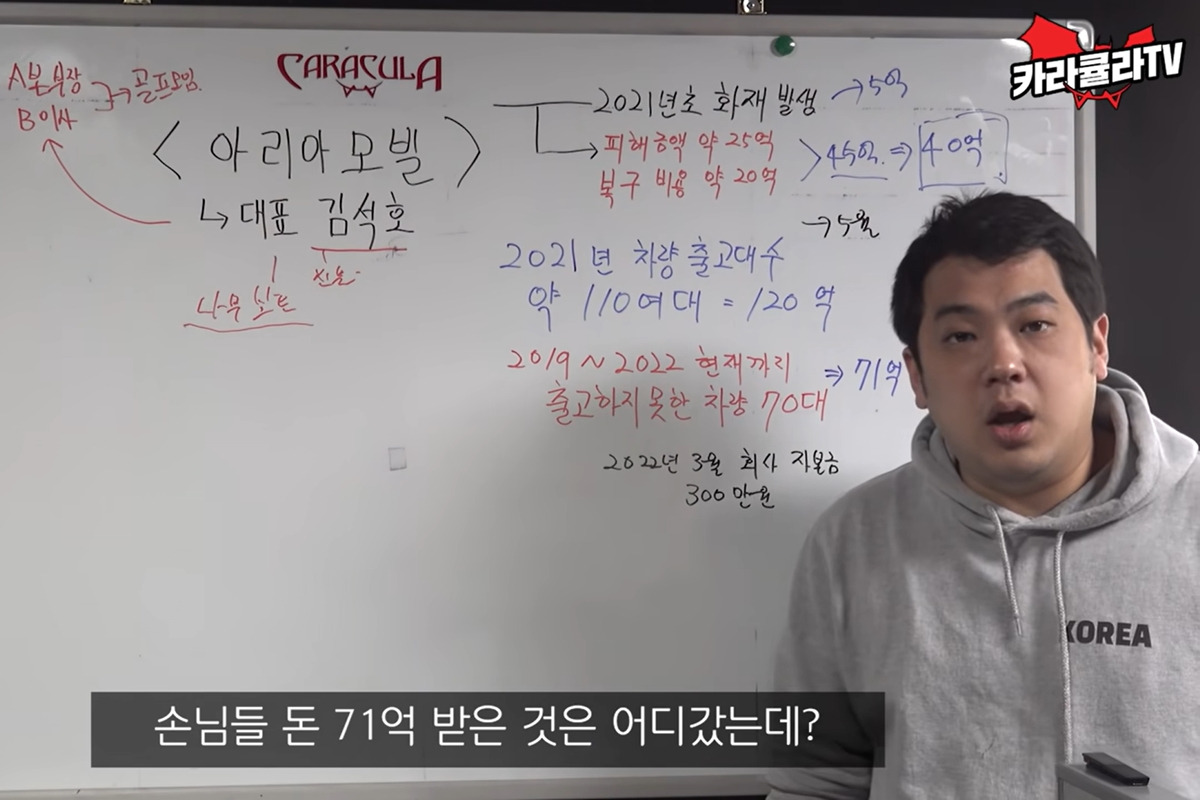 카라큘라TV
CARACULA
A본부장 → 골프모임.
B이사
<아리아모빌>
↳ 대표 김석호
나무보트
2021년초 화재 발생 → 5억
피해금액 약 25억
복구 비용 약 20억
45억. ⇒ 40억
→ 5월
2021년 차량출고대수
약 110여대 = 120억
2019 ~ 2022 현재까지
출고하지못한 차량 70대
⇒ 71억
2022년 3월 회사 자본금
300만원
KOREA
손님들 돈 71억 받은 것은 어디갔는데?